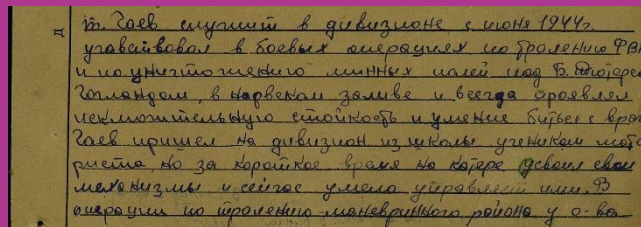 т. Гаев служит в дивизионе с июня 1944г.
участвовал в боевых операциях по тралению ФВК
и по уничтожению минных полей под Б. Тютерсом
Гогландом, в нарвском заливе и всегда проявлял
исключительную стойкость и умение биться с враг
Гаев пришел на дивизион из школы учеником мото
риста, но за короткое время на катере освоил свои
механизмы и сейчас умело управляет ими. В
операции по тралению маневренного района у о-ва